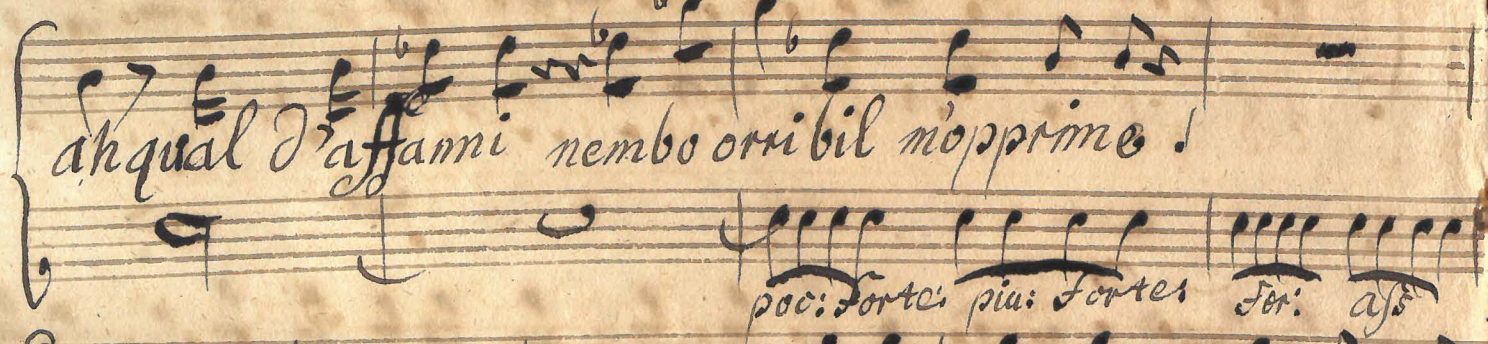 ah qual d'affanni nembo orribil m'opprime!
poc: Forte: piu: Forte: For: ass